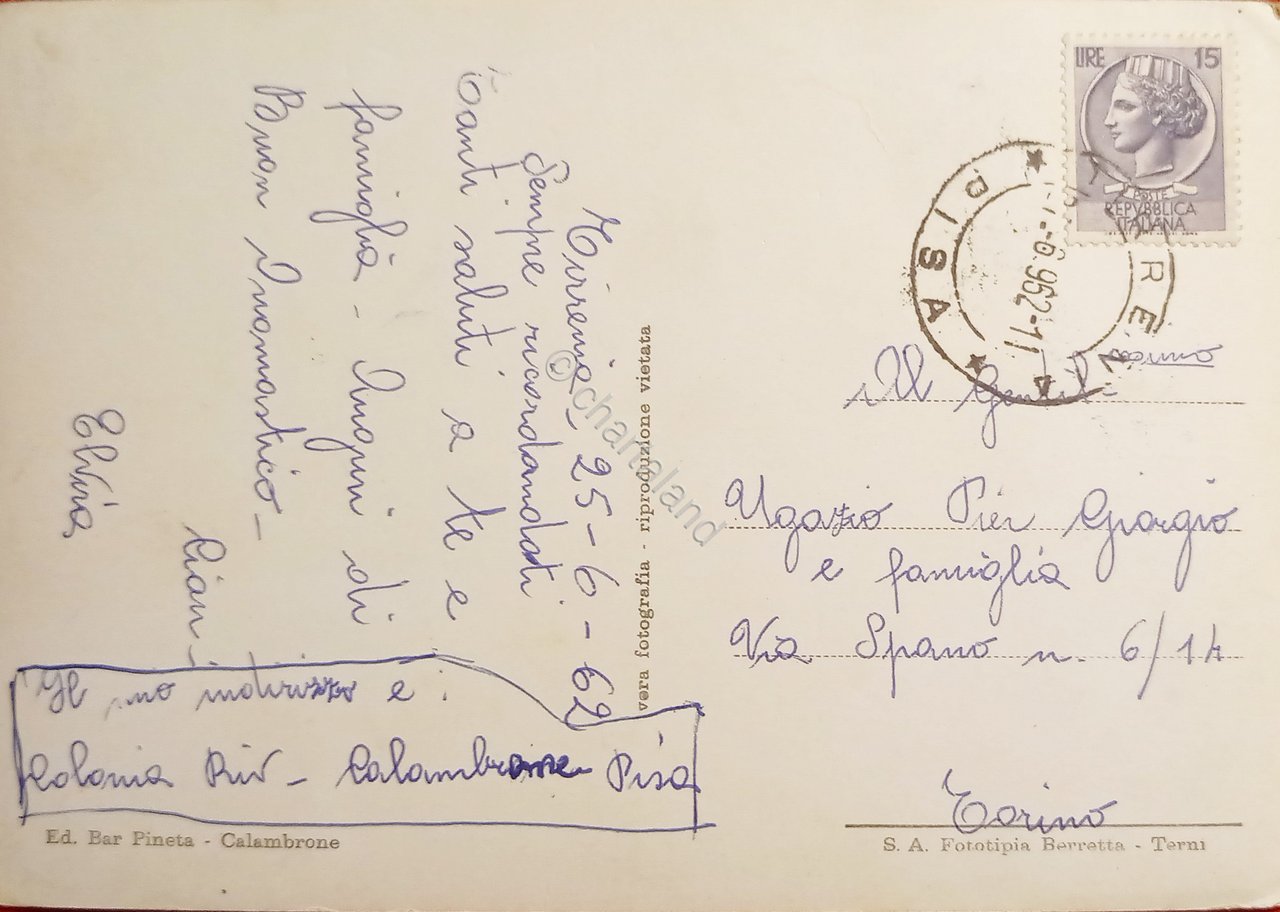 Tirrenia 25-6-62
Sempre ricordandoti
Tanti saluti a te e
famiglia - Auguri di
Buon Onomastico -
Cian -
Elvira
Il mio indirizzo è:
Colonia Riv - Calambrone Pisa
Ed. Bar Pineta - Calambrone
vera fotografia - riproduzione vietata
LIRE 15
POSTE
REPVBBLICA
ITALIANA
TIRRENIA
PISA
6.962-11
Al Gentilissimo
Ugazio Pier Giorgio
e famiglia
Via Spano n. 6/14
Torino
S. A. Fototipia Berretta - Terni
© charteland